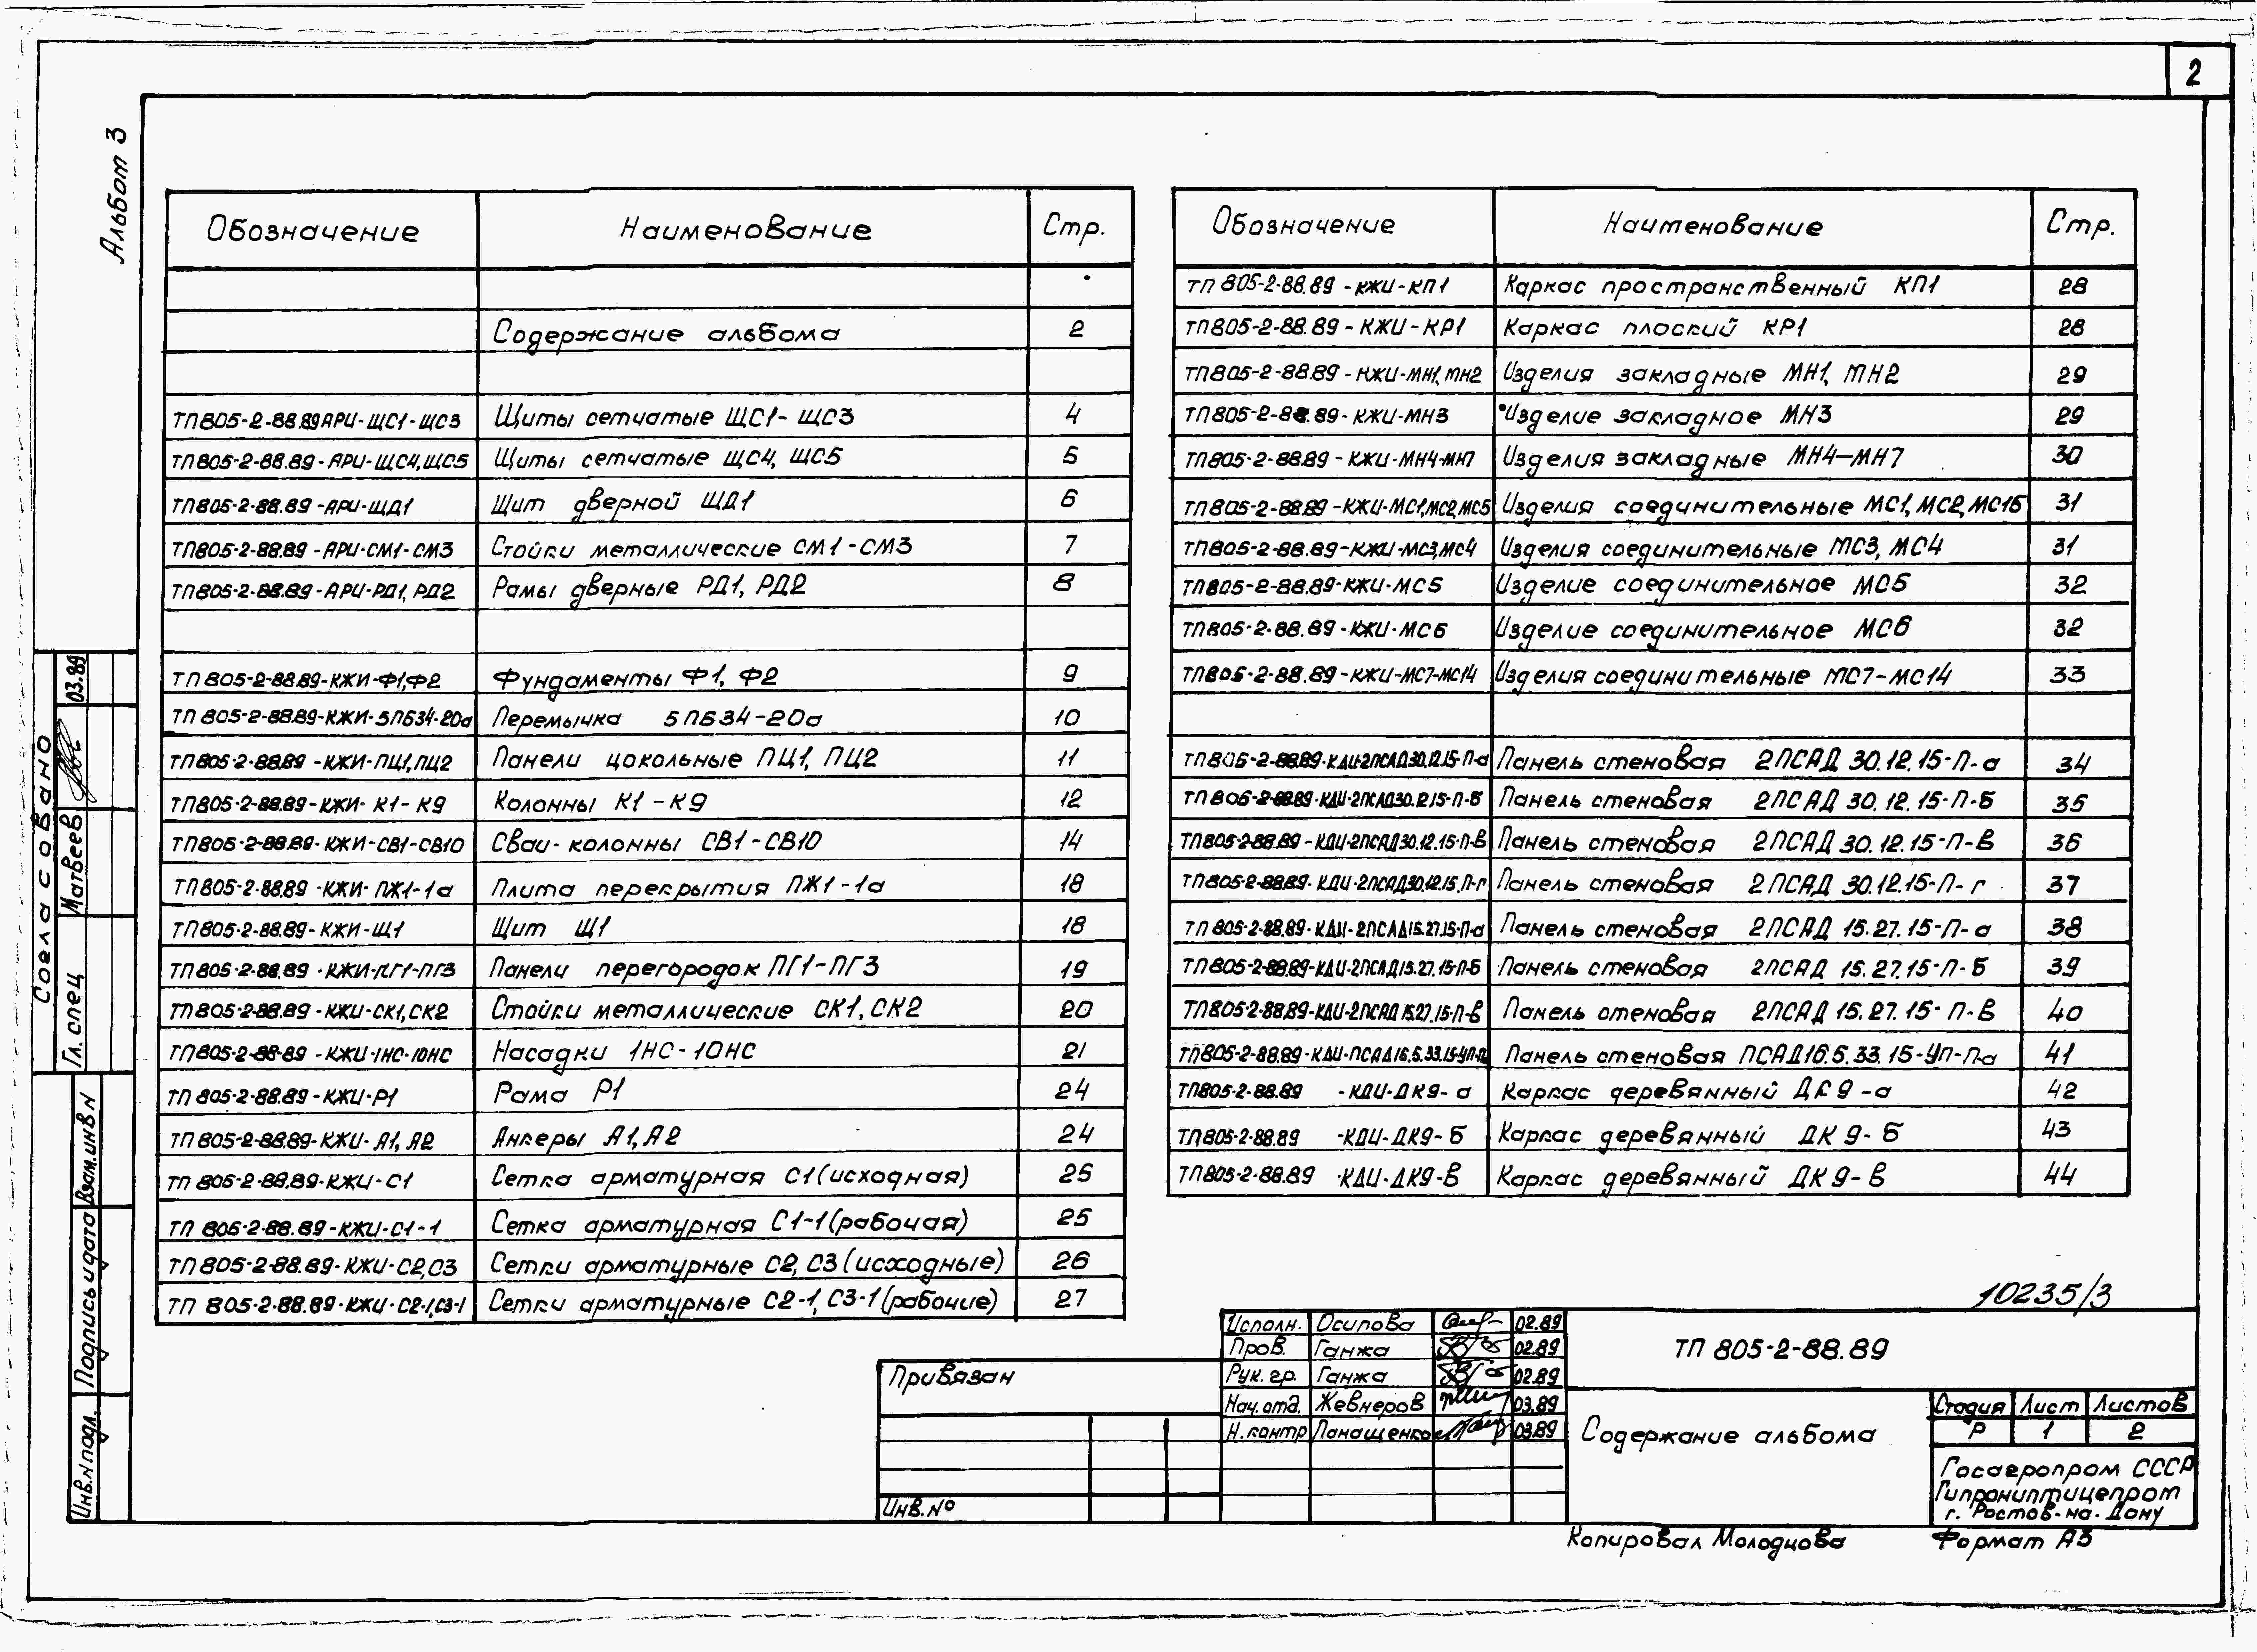 2
Альбом 3
Обозначение Наименование Стр.
Содержание альбома 2
ТП805-2-88.89АРИ-ЩС1-ЩС3 Щиты сетчатые ЩС1-ЩС3 4
ТП805-2-88.89-АРИ-ЩС4,ЩС5 Щиты сетчатые ЩС4, ЩС5 5
ТП805-2-88.89-АРИ-ЩД1 Щит дверной ЩД1 6
ТП805-2-88.89-АРИ-СМ1-СМ3 Стойки металлические СМ1-СМ3 7
ТП805-2-88.89-АРИ-РД1, РД2 Рамы дверные РД1, РД2 8
ТП805-2-88.89-КЖИ-Ф1,Ф2 Фундаменты Ф1, Ф2 9
ТП 805-2-88.89-КЖИ-5ПБ34-20а Перемычка 5ПБ34-20а 10
ТП805-2-88.89-КЖИ-ПЦ1,ПЦ2 Панели цокольные ПЦ1, ПЦ2 11
ТП805-2-88.89-КЖИ-К1-К9 Колонны К1-К9 12
ТП805-2-88.89-КЖИ-СВ1-СВ10 Сваи-колонны СВ1-СВ10 14
ТП805-2-88.89-КЖИ-ПЖ1-1а Плита перекрытия ПЖ1-1а 18
ТП805-2-88.89-КЖИ-Щ1 Щит Щ1 18
ТП805-2-88.89-КЖИ-ПГ1-ПГ3 Панели перегородок ПГ1-ПГ3 19
ТП805-2-88.89-КЖИ-СК1,СК2 Стойки металлические СК1, СК2 20
ТП805-2-88-89-КЖИ-1НС-10НС Насадки 1НС-10НС 21
ТП 805-2-88.89-КЖИ-Р1 Рама Р1 24
ТП805-2-88.89-КЖИ-А1, А2 Анкеры А1, А2 24
ТП 805-2-88.89-КЖИ-С1 Сетка арматурная С1 (исходная) 25
ТП 805-2-88.89-КЖИ-С1-1 Сетка арматурная С1-1 (рабочая) 25
ТП805-2-88.89-КЖИ-С2,С3 Сетки арматурные С2, С3 (исходные) 26
ТП 805-2-88.89-КЖИ-С2-1,С3-1 Сетки арматурные С2-1, С3-1 (рабочие) 27
Обозначение Наименование Стр.
ТП 805-2-88.89-КЖИ-КП1 Каркас пространственный КП1 28
ТП805-2-88.89-КЖИ-КР1 Каркас плоский КР1 28
ТП805-2-88.89-КЖИ-МН1, МН2 Изделия закладные МН1, МН2 29
ТП805-2-88.89-КЖИ-МН3 Изделие закладное МН3 29
ТП805-2-88.89-КЖИ-МН4-МН7 Изделия закладные МН4-МН7 30
ТП805-2-88.89-КЖИ-МС1,МС2,МС5 Изделия соединительные МС1, МС2, МС15 31
ТП805-2-88.89-КЖИ-МС3,МС4 Изделия соединительные МС3, МС4 31
ТП805-2-88.89-КЖИ-МС5 Изделие соединительное МС5 32
ТП805-2-88.89-КЖИ-МС6 Изделие соединительное МС6 32
ТП805-2-88.89-КЖИ-МС7-МС14 Изделия соединительные МС7-МС14 33
ТП805-2-88.89-КДИ-2ПСАД30.12.15-П-а Панель стеновая 2ПСАД 30.12.15-П-а 34
ТП805-2-88.89-КДИ-2ПСАД30.12.15-П-б Панель стеновая 2ПСАД 30.12.15-П-б 35
ТП805-2-88.89-КДИ-2ПСАД30.12.15-П-в Панель стеновая 2ПСАД 30.12.15-П-в 36
ТП805-2-88.89-КДИ-2ПСАД30.12.15.П-г Панель стеновая 2ПСАД 30.12.15-П-г 37
ТП 805-2-88.89-КДИ-2ПСАД15.27.15-П-а Панель стеновая 2ПСАД 15.27.15-П-а 38
ТП805-2-88.89-КДИ-2ПСАД15.27.15-П-б Панель стеновая 2ПСАД 15.27.15-П-б 39
ТП805-2-88.89-КДИ-2ПСАД15.27.15-П-в Панель стеновая 2ПСАД 15.27.15-П-в 40
ТП805-2-88.89-КДИ-ПСАД16.5.33.15-УП-П Панель стеновая ПСАД16.5.33.15-УП-П-а 41
ТП805-2-88.89 -КДИ-ДК9-а Каркас деревянный ДК9-а 42
ТП805-2-88.89 -КДИ-ДК9-б Каркас деревянный ДК9-б 43
ТП805-2-88.89 -КДИ-ДК9-в Каркас деревянный ДК9-в 44
Согласовано
Гл. спец Матвеев 03.89
Инв.N подл. Подпись и дата Взам.инв N
10235/3
Привязан
Инв.№
Исполн. Осипова 02.89
Пров. Ганжа 02.89
Рук. гр. Ганжа 02.89
Нач. отд. Жевнеров 03.89
Н. контр Панащенко 03.89
ТП 805-2-88.89
Содержание альбома
Стадия Лист Листов
Р 1 2
Госагропром СССР
Гипрониптицепром
г. Ростов-на-Дону
Копировал Молодцова Формат А3